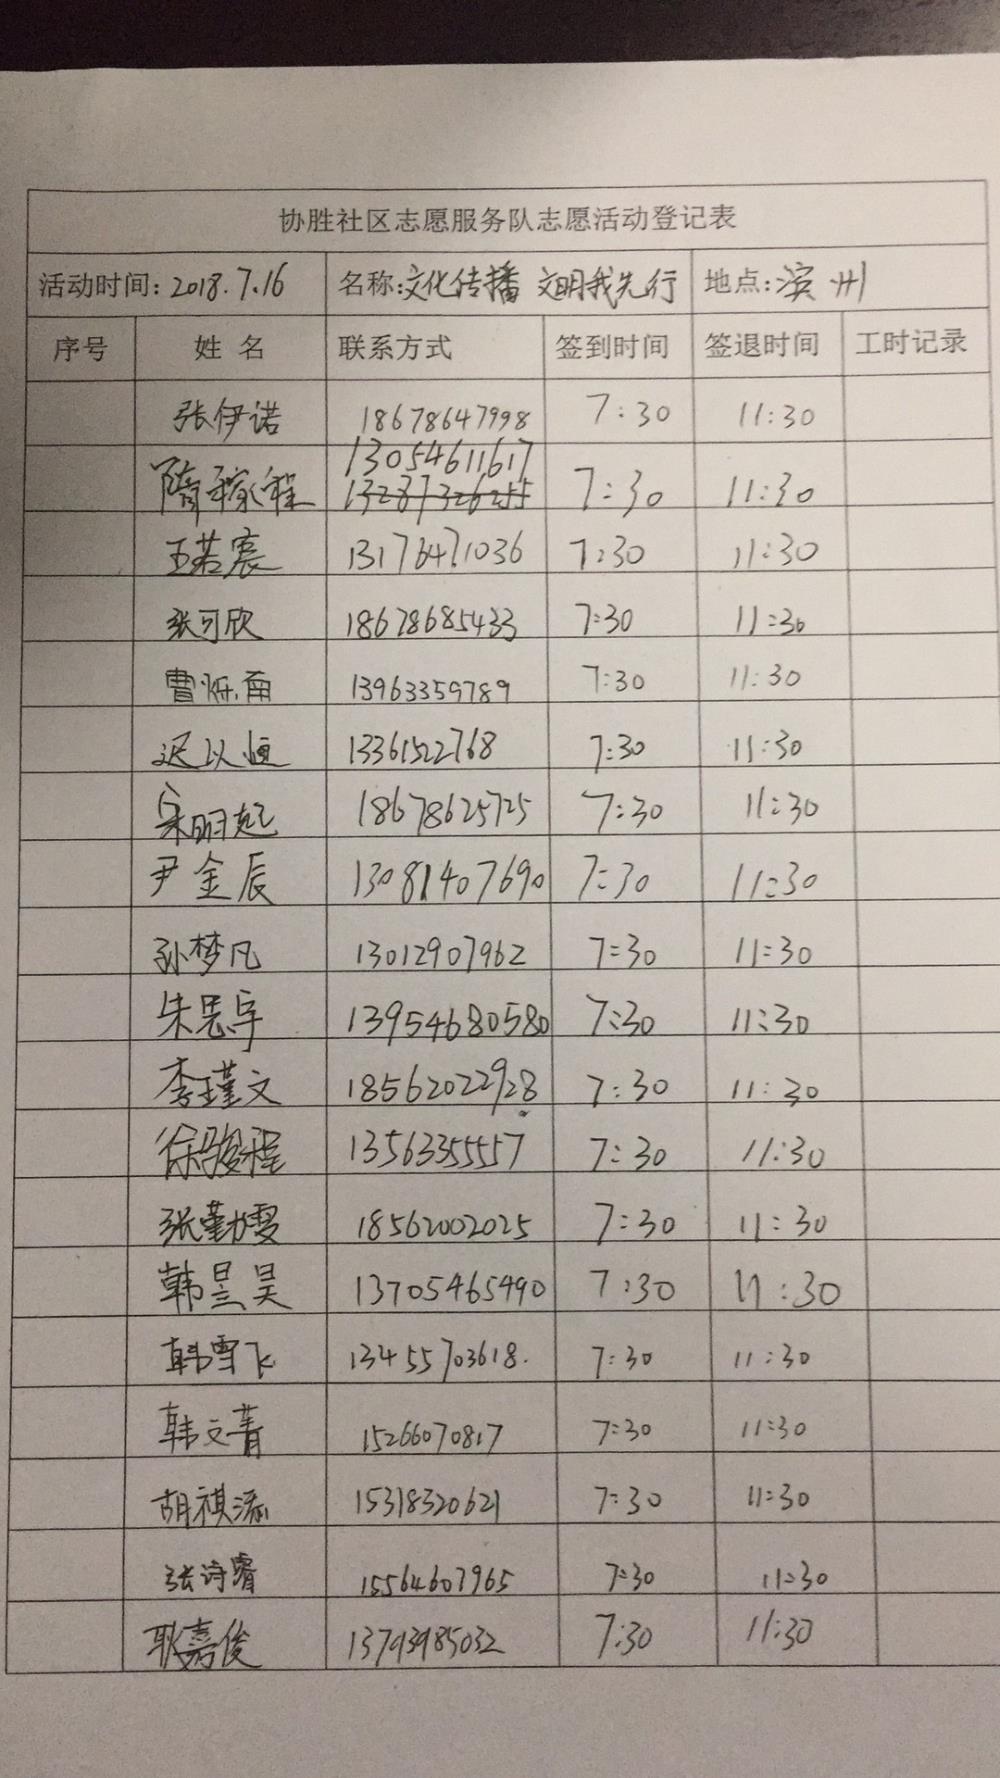 协胜社区志愿服务队志愿活动登记表
活动时间: 2018.7.16 名称: 文化传播 文明我先行 地点: 滨州
序号 姓名 联系方式 签到时间 签退时间 工时记录
张伊诺 18678647998 7:30 11:30
13054611617
隋稼程 13287326255 7:30 11:30
王若宸 13176471036 7:30 11:30
张可欣 18678685433 7:30 11:30
曹烁雨 13963359789 7:30 11:30
迟以恒 13361522768 7:30 11:30
宋明起 18678625725 7:30 11:30
尹金辰 13081407690 7:30 11:30
孙梦凡 13012907962 7:30 11:30
朱思宇 13954680580 7:30 11:30
李瑾文 18562022928 7:30 11:30
徐骏程 13563355557 7:30 11:30
张勤雯 18562002025 7:30 11:30
韩昱昊 13705465490 7:30 11:30
韩雪飞 13455703618. 7:30 11:30
韩文菁 15266070817 7:30 11:30
胡祺添 15318320621 7:30 11:30
张诗睿 15564607965 7:30 11:30
耿嘉俊 13793985032 7:30 11:30